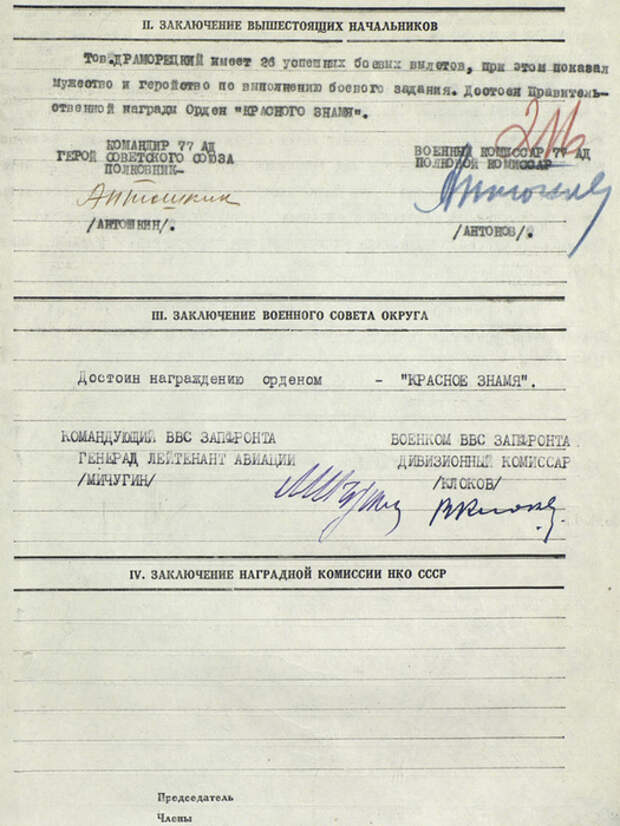 II. ЗАКЛЮЧЕНИЕ ВЫШЕСТОЯЩИХ НАЧАЛЬНИКОВ
Тов.ДРАМОРЕЦКИЙ имеет 26 успешных боевых вылетов, при этом показал
мужество и геройство по выполнению боевого задания. Достоен Правитель-
ственной награди Орден "КРАСНОГО ЗНАМЯ".
КОМАНДИР 77 АД
ГЕРОЙ СОВЕТСКОГО СОЮЗА
ПОЛКОВНИК-
Антошкин
/АНТОШКИН/.
ВОЕННЫЙ КОМИССАР 77 АД
ПОЛКОВОЙ КОМИССАР
/АНТОНОВ/.
III. ЗАКЛЮЧЕНИЕ ВОЕННОГО СОВЕТА ОКРУГА
Достоин награждению орденом - "КРАСНОЕ ЗНАМЯ".
КОМАНДУЮЩИЙ ВВС ЗАПФРОНТА
ГЕНЕРАД ЛЕЙТЕНАНТ АВИАЦИИ
/МИЧУГИН/
ВОЕНКОМ ВВС ЗАПФРОНТА
ДИВИЗИОННЫЙ КОМИССАР
/КЛОКОВ/
IV. ЗАКЛЮЧЕНИЕ НАГРАДНОЙ КОМИССИИ НКО СССР
Председатель
Члены